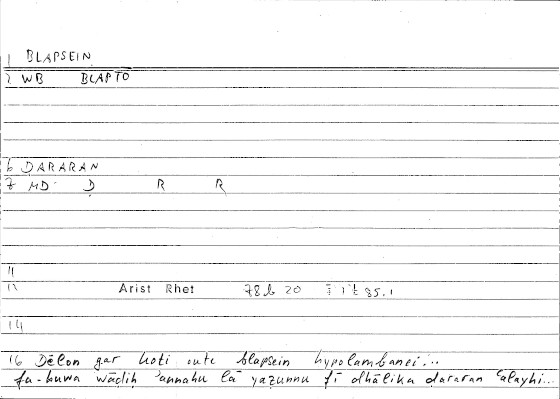 1 BLAPSEIN
2 WB BLAPTO
6 DARARAN
7 MD Ḍ R R
11
14
Arist Rhet 78b 20 85.1
16 Dēlon gar hoti oute blapsein hypolambanei...
fa-huwa wāḍiḥ 'annahu lā yaẓunnu fī dhālika ḍararan ʿalayhi...